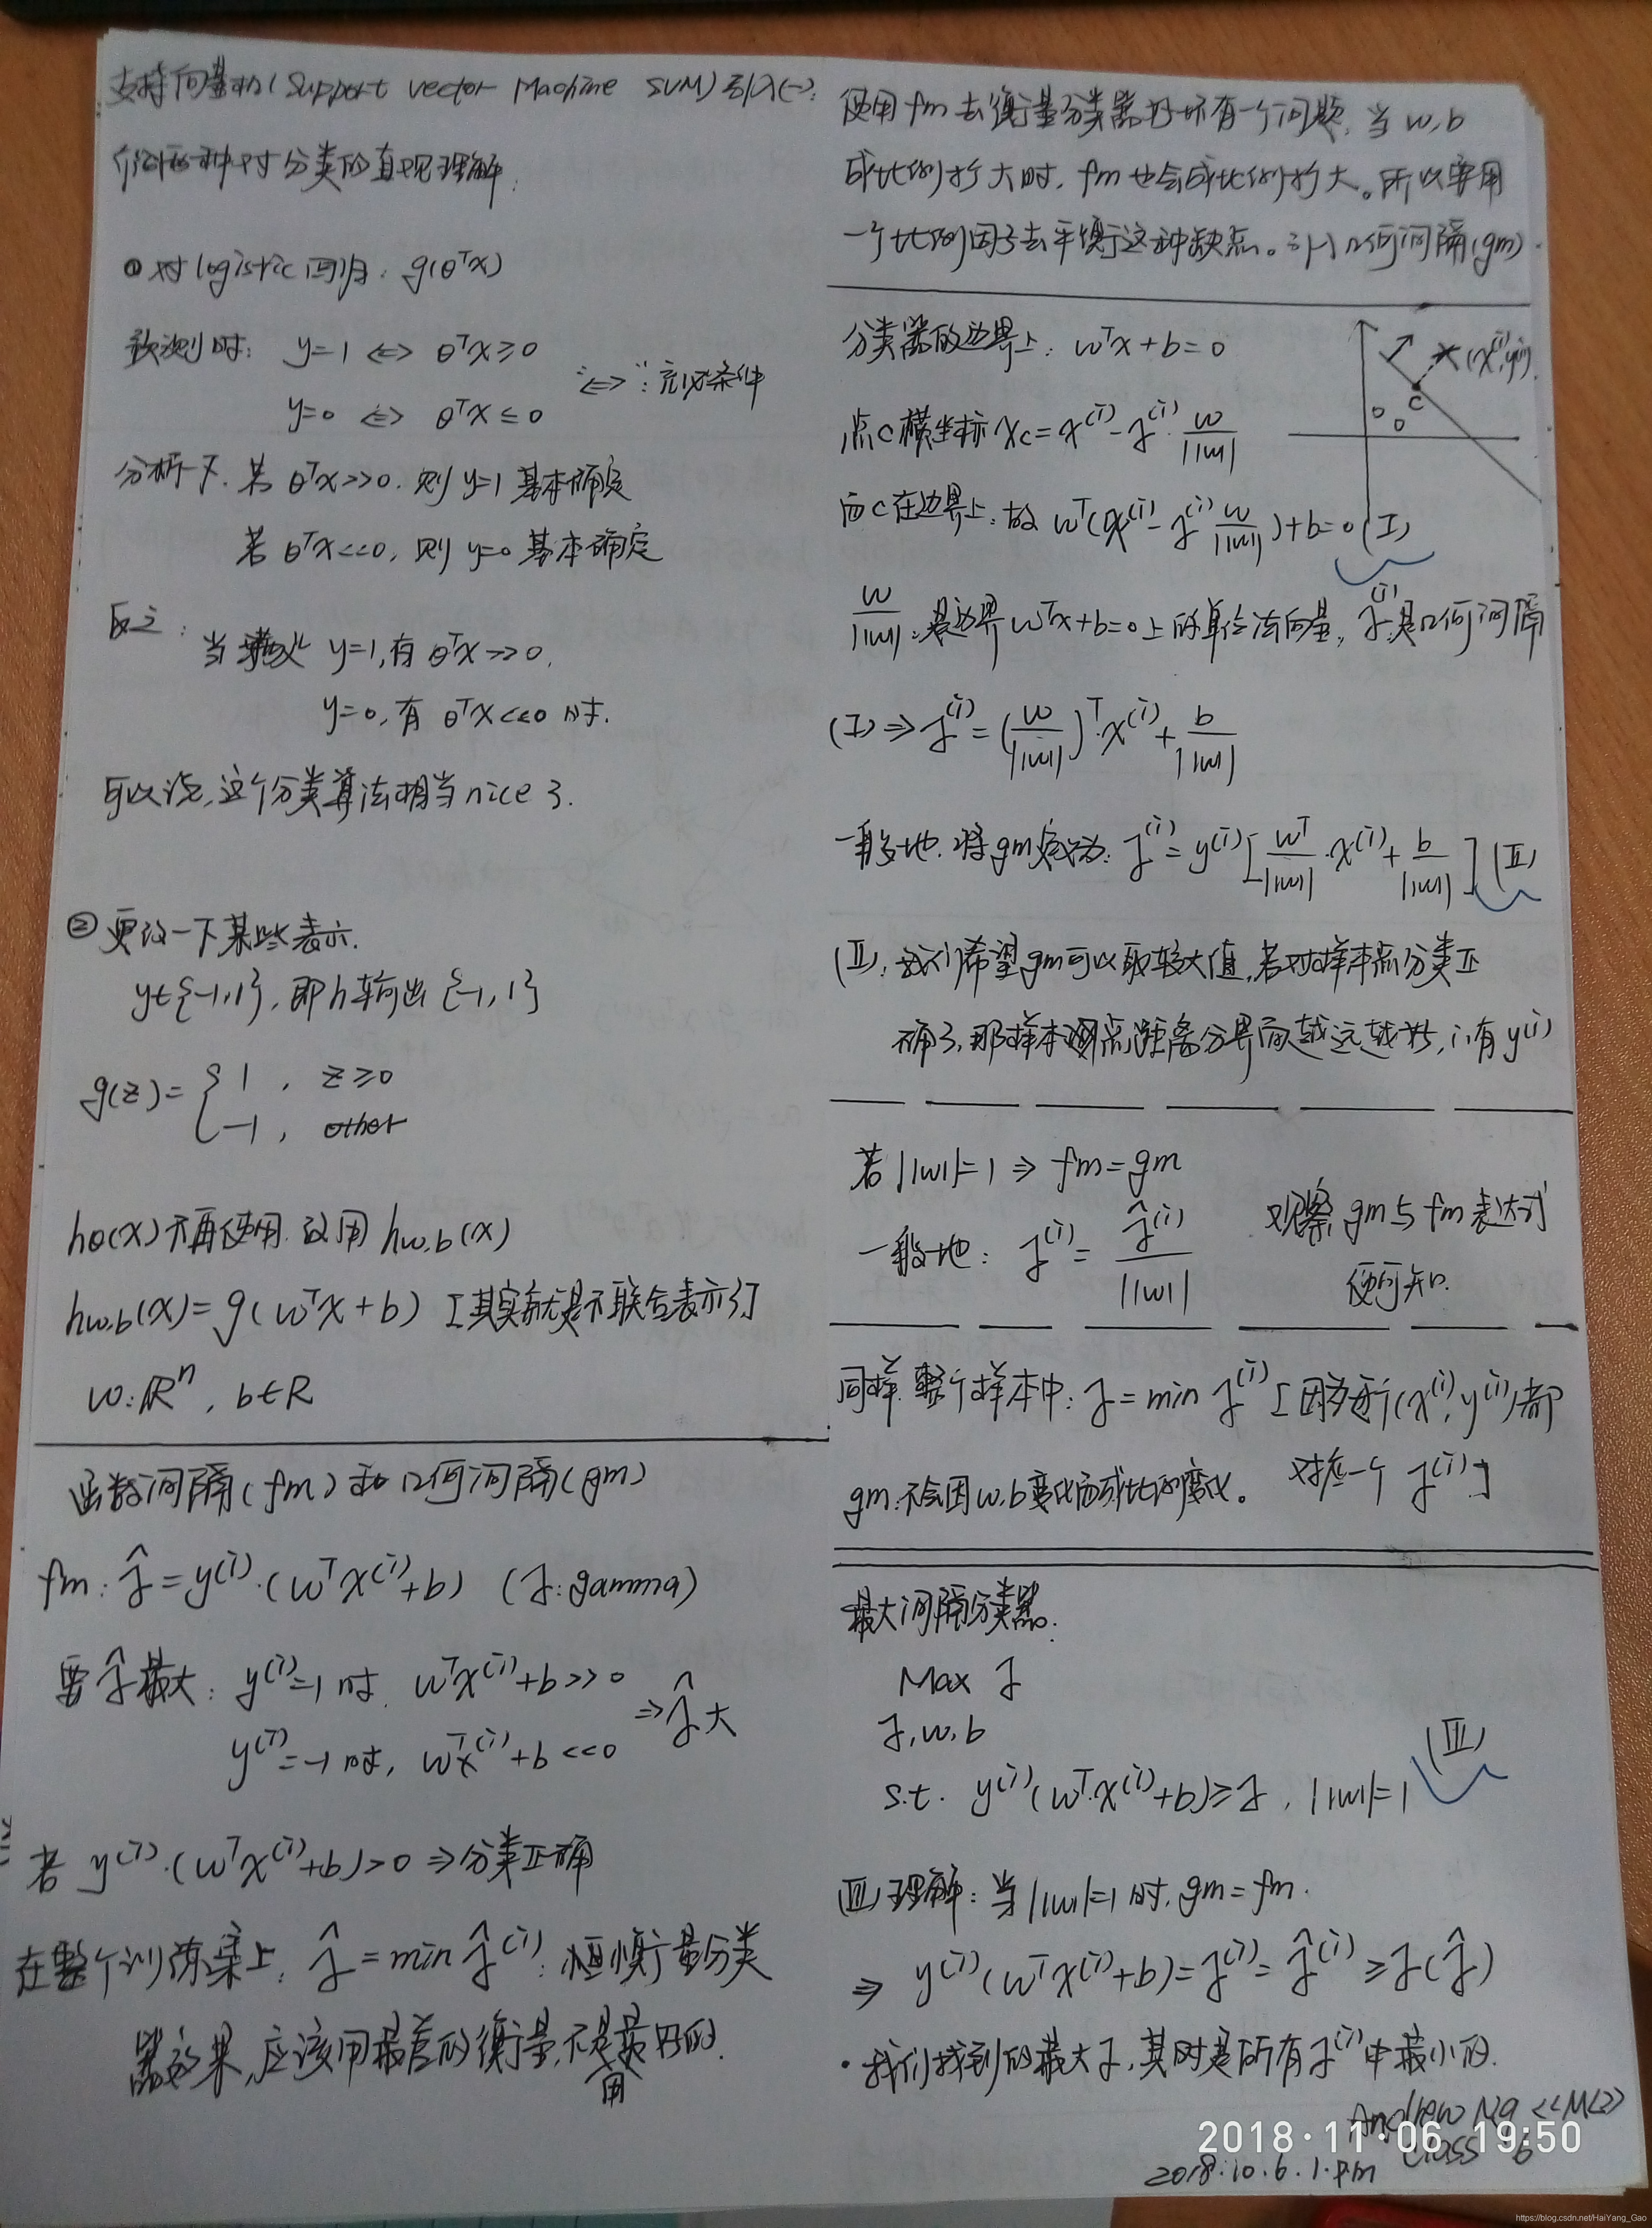 支持向量机(Support vector Machine SVM)引入(一):
介绍两种对分类的直观理解:
① 对logistic回归: g(θᵀx)
预测时: y=1 ⇔ θᵀx≥0
"⇔": 充必条件
y=0 ⇔ θᵀx≤0
分析一下. 若 θᵀx>>0. 则 y=1 基本确定
若 θᵀx<<0, 则 y=0 基本确定
反之:
当 y=1,有 θᵀx>>0,
y=0,有 θᵀx<<0 时.
可以说,这个分类算法相当nice了.
② 更改一下某些表示.
y∈{-1,1}, 即h输出{-1,1}
g(z)={ 1 , z≥0
-1 , other
hθ(x)不再使用. 改用 hw,b(x)
hw,b(x)=g(wᵀx+b) [其实就是不联合表示了]
w:ℝⁿ, b∈R
函数间隔(fm)和几何间隔(gm)
fm: γ̂=y⁽ⁱ⁾·(wᵀx⁽ⁱ⁾+b) (γ:gamma)
要γ̂最大: y⁽ⁱ⁾=1时. wᵀx⁽ⁱ⁾+b>>0
⇒γ̂大
y⁽ⁱ⁾=-1时, wᵀx⁽ⁱ⁾+b<<0
若 y⁽ⁱ⁾·(wᵀx⁽ⁱ⁾+b)>0 ⇒分类正确
在整个训练集上: γ̂=min γ̂⁽ⁱ⁾: 衡量分类
器效果,应该用最差的衡量,不是用最好的.
使用fm去衡量分类器好坏有一个问题, 当w,b
成比例扩大时, fm也会成比例扩大。所以要用
一个比例因子去平衡这种缺点。引入几何间隔(gm).
分类器的边界上: wᵀx+b=0
(x⁽ⁱ⁾,y⁽ⁱ⁾)
C
点C横坐标 xc=x⁽ⁱ⁾-γ⁽ⁱ⁾·w/||w||
而C在边界上: 故 wᵀ(x⁽ⁱ⁾-γ⁽ⁱ⁾w/||w||)+b=0 (I)
w/||w||: 是边界wᵀx+b=0上的单位法向量, γ⁽ⁱ⁾:是几何间隔
(I)⇒γ⁽ⁱ⁾=(w/||w||)ᵀ·x⁽ⁱ⁾+b/||w||
一般地. 将gm定义为: γ⁽ⁱ⁾=y⁽ⁱ⁾[wᵀ/||w||·x⁽ⁱ⁾+b/||w||] (II)
(II): 我们希望gm可以取较大值,若对样本点分类正
确了,那样本点距离分界面越远越好, ∴有y⁽ⁱ⁾
若||w||=1 ⇒ fm=gm
一般地: γ⁽ⁱ⁾=γ̂⁽ⁱ⁾/||w||
观察gm与fm表达式
便可知.
同样. 整个样本中: γ=min γ⁽ⁱ⁾ [因为每个(x⁽ⁱ⁾,y⁽ⁱ⁾)都
对应一个γ⁽ⁱ⁾]
gm:不会因w,b变化而成比例变化。
最大间隔分类器.
Max γ
γ,w,b
s.t. y⁽ⁱ⁾(wᵀ·x⁽ⁱ⁾+b)≥γ, ||w||=1 (III)
(III)理解: 当||w||=1时, gm=fm.
⇒ y⁽ⁱ⁾(wᵀx⁽ⁱ⁾+b)=γ⁽ⁱ⁾=γ̂⁽ⁱ⁾≥γ(γ̂)
·我们找到的最大γ, 其时是所有γ⁽ⁱ⁾中最小的.
Andrew Ng <<ML>>
Class 6
2018.10.6.1.pm
2018·11·06 19:50
https://blog.csdn.net/HaiYang_Gao